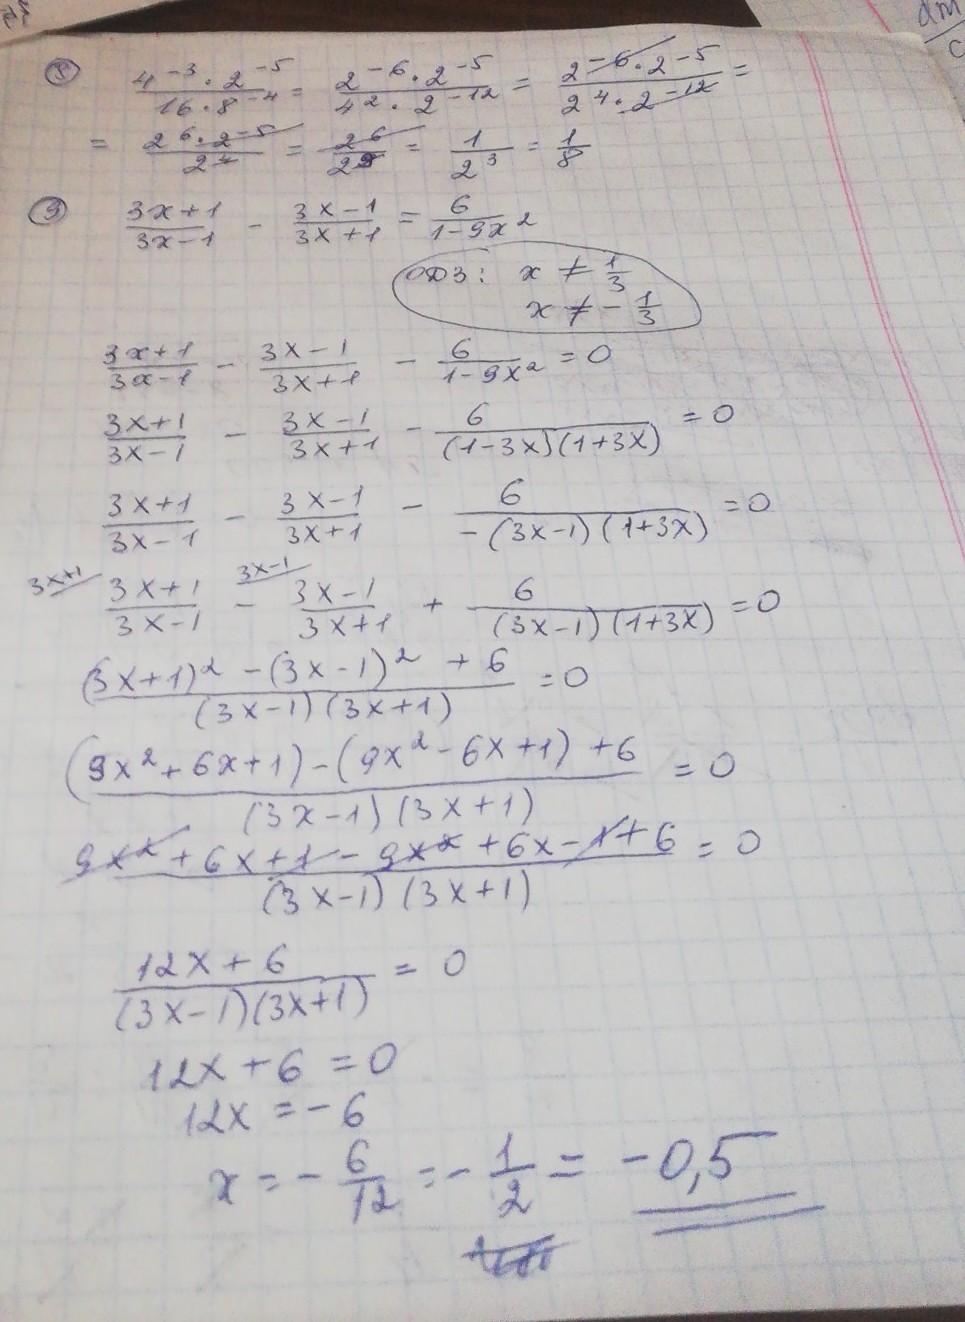 ⑧ (4^-3 · 2^-5)/(16 · 8^-4) = (2^-6 · 2^-5)/(4^2 · 2^-12) = (2^-6 · 2^-5)/(2^4 · 2^-12) =
= (2^6 · 2^-5)/(2^4) = 2^6/2^9 = 1/2^3 = 1/8
⑨ (3x+1)/(3x-1) - (3x-1)/(3x+1) = 6/(1-9x^2)
ОДЗ: x ≠ 1/3
x ≠ -1/3
(3x+1)/(3x-1) - (3x-1)/(3x+1) - 6/(1-9x^2) = 0
(3x+1)/(3x-1) - (3x-1)/(3x+1) - 6/((1-3x)(1+3x)) = 0
(3x+1)/(3x-1) - (3x-1)/(3x+1) - 6/(-(3x-1)(1+3x)) = 0
3x+1/ (3x+1)/(3x-1) - 3x-1/ (3x-1)/(3x+1) + 6/((3x-1)(1+3x)) = 0
((3x+1)^2 - (3x-1)^2 + 6)/((3x-1)(3x+1)) = 0
((9x^2+6x+1) - (9x^2-6x+1) + 6)/((3x-1)(3x+1)) = 0
(9x^2 + 6x + 1 - 9x^2 + 6x - 1 + 6)/((3x-1)(3x+1)) = 0
(12x+6)/((3x-1)(3x+1)) = 0
12x + 6 = 0
12x = -6
x = -6/12 = -1/2 = -0,5
dm
c